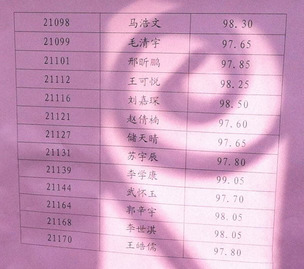 21098 马浩文 98.30
21099 毛清宇 97.65
21101 邢昕鹏 97.85
21112 王可悦 98.25
21116 刘嘉琛 98.50
21121 赵倩楠 97.60
21127 储天晴 97.65
21131 苏宇辰 97.80
21139 李学康 99.05
21144 武怀玉 97.70
21164 郭辛宇 98.05
21168 李世淇 98.05
21170 王皓儒 97.80